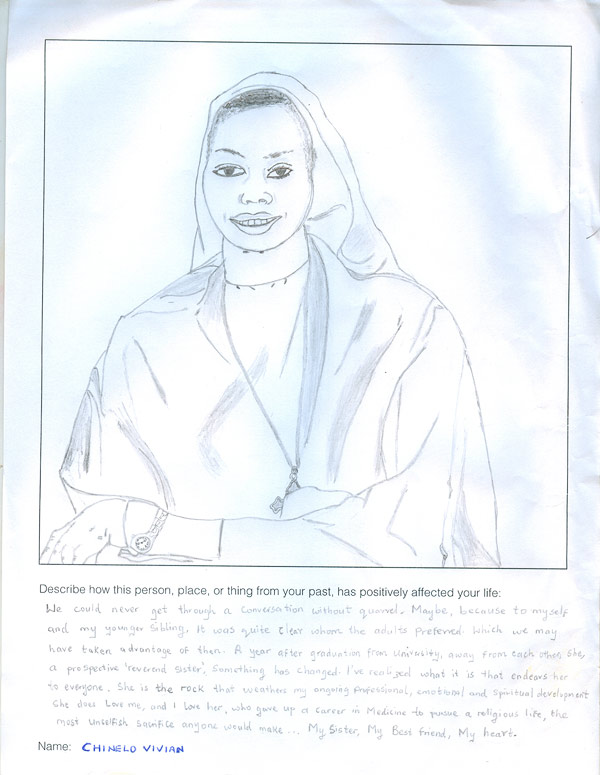 Describe how this person, place, or thing from your past, has positively affected your life:
We could never get through a conversation without quarrel. Maybe, because to myself
and my younger sibling, it was quite clear whom the adults preferred. Which we may
have taken advantage of then. A year after graduation from University, away from each other, She,
a prospective 'reverend sister', something has changed. I've realized what it is that endears her
to everyone. She is the rock that weathers my ongoing professional, emotional and spiritual development
She does love me, and I love her, who gave up a career in Medicine to pursue a religious life, the
most unselfish sacrifice anyone would make... My Sister, My Best friend, My heart.
Name: CHINELO VIVIAN